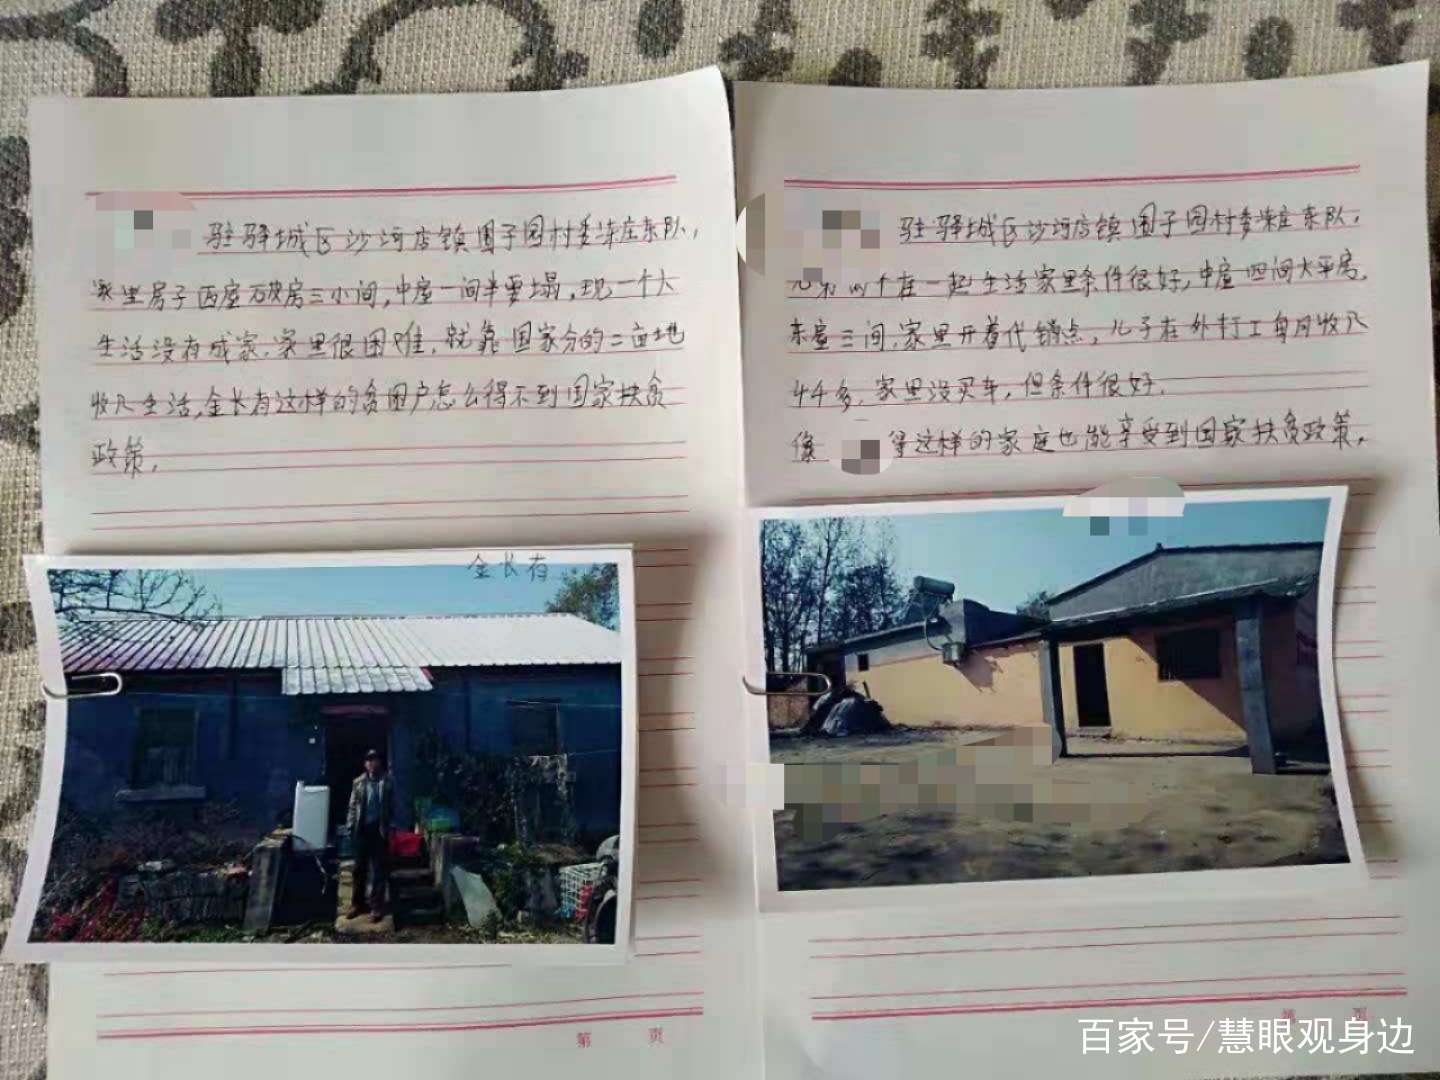 驻驿城区沙河店镇围子园村委朱庄东队，
家里房子西屋破房三小间，中屋一间半要塌，现一个人
生活没有成家，家里很困难，就靠国家分的二亩地
收入生活，金长有这样的贫困户怎么得不到国家扶贫
政策。
金长有
第 页
驻驿城区沙河店镇围子园村委朱庄东队，
兄弟两个在一起生活家里条件很好，中屋四间大平房，
东屋三间，家里开着代销点，儿子在外打工每月收入
44多，家里没买车，但条件很好．
像 等这样的家庭也能享受到国家扶贫政策，
第 页
百家号/慧眼观身边